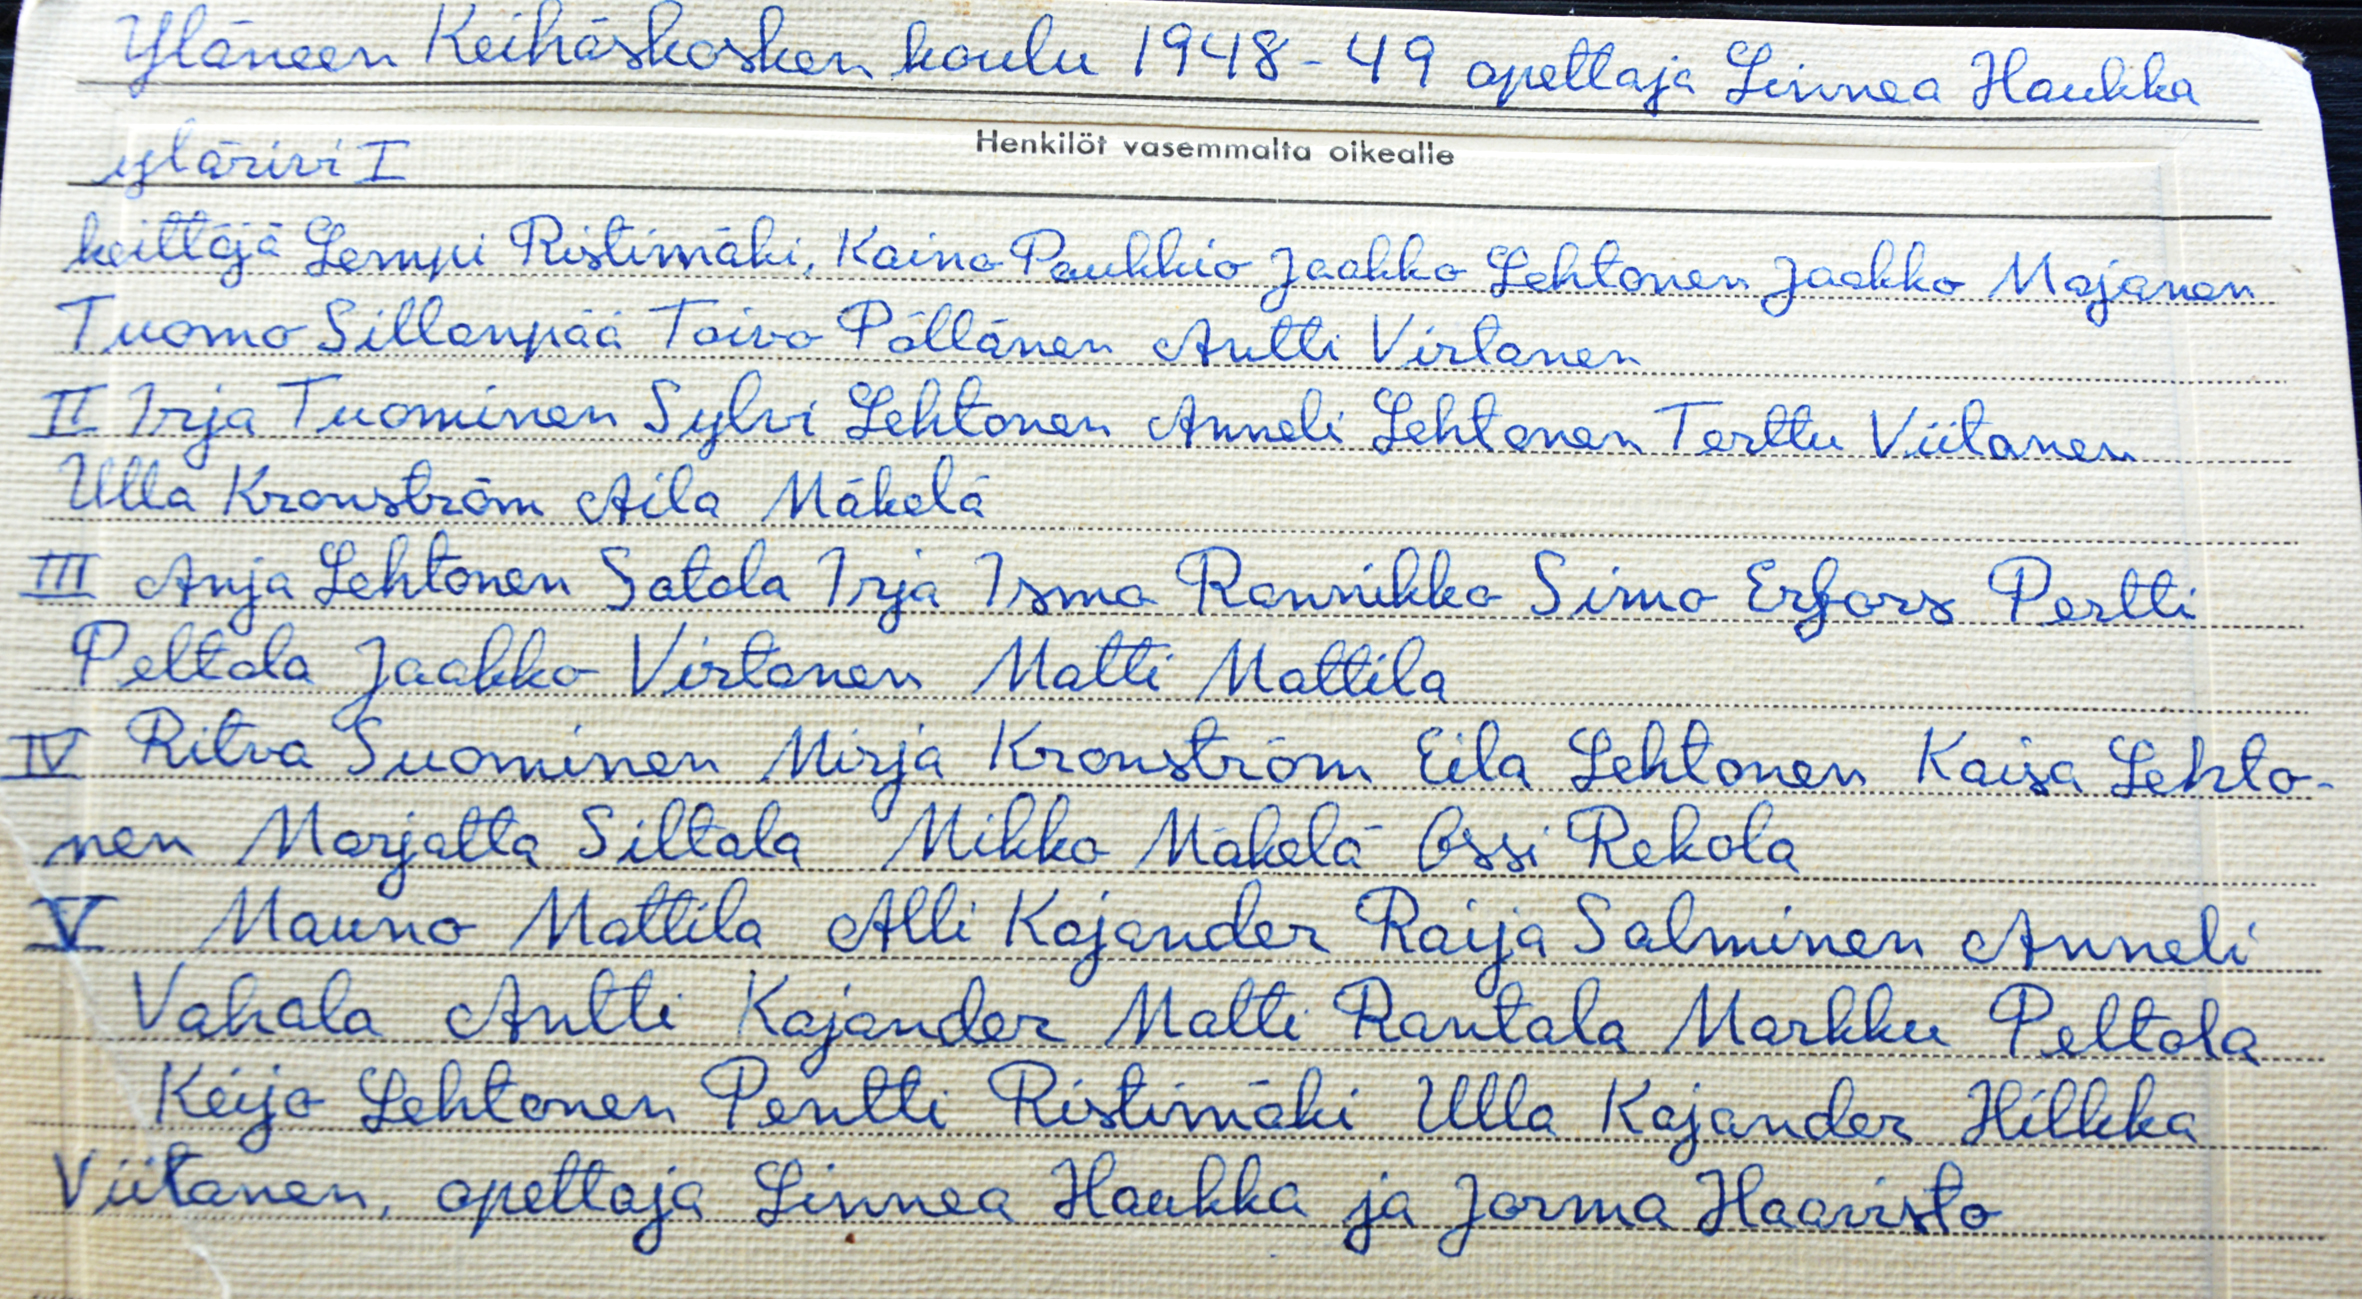 Yläneen Keihäskosken koulu 1948-49 opettaja Linnea Haukka
Henkilöt vasemmalta oikealle
ylärivi I
keittäjä Lempi Ristimäki, Kaino Paukkio Jaakko Lehtonen Jaakko Majanen
Tuomo Sillanpää Toivo Pöllänen Antti Virtanen
II Irja Tuominen Sylvi Lehtonen Anneli Lehtonen Terttu Viitanen
Ulla Kronström Aila Mäkelä
III Anja Lehtonen Satola Irja Ismo Rannikko Simo Erfors Pertti
Peltola Jaakko Virtanen Matti Mattila
IV Ritva Suominen Mirja Kronström Eila Lehtonen Kaisa Lehto-
nen Marjatta Siltala Mikko Mäkelä Ossi Rekola
V Mauno Mattila Alli Kajander Raija Salminen Anneli
Vahala Antti Kajander Matti Rantala Markku Peltola
Keijo Lehtonen Pentti Ristimäki Ulla Kajander Hilkka
Viitanen, opettaja Linnea Haukka ja Jorma Haavisto